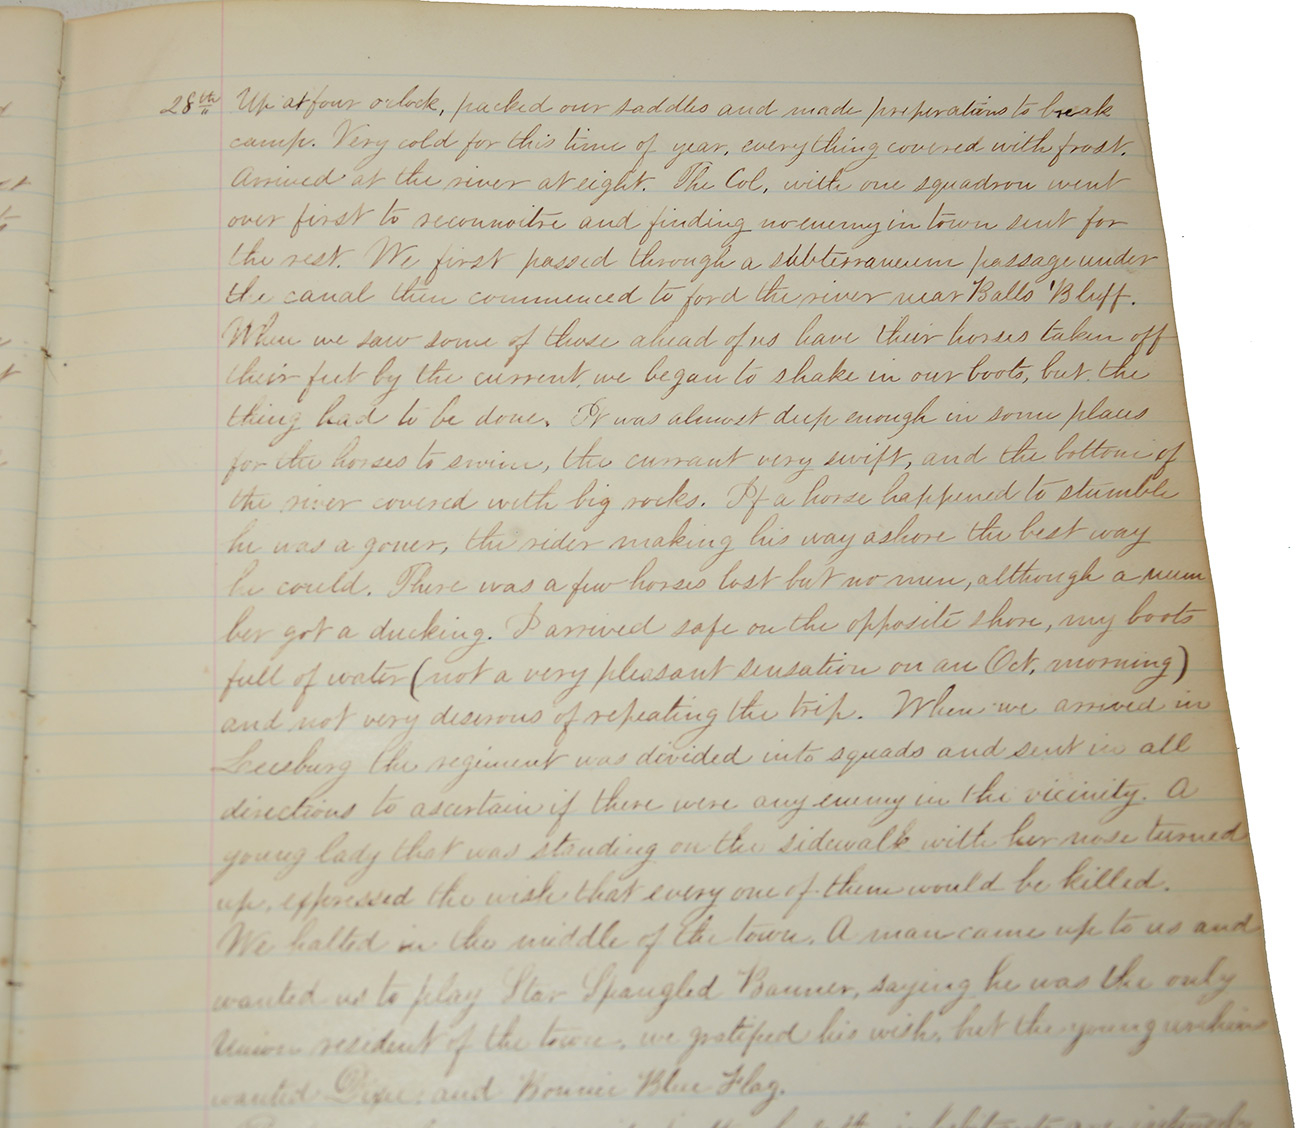 28th Up at four oclock, packed our saddles and made preperations to break
camp. Very cold for this time of year, everything covered with frost.
Arrived at the river at eight. The Col, with one squadron went
over first to reconnoitre and finding no enemy in town sent for
the rest. We first passed through a subterraneum passage under
the canal then commenced to ford the river near Balls Bluff.
When we saw some of those ahead of us have their horses taken off
their feet by the current, we began to shake in our boots, but the
thing had to be done. It was almost deep enough in some places
for the horses to swim, the currant very swift, and the bottom of
the river covered with big rocks. If a horse happened to stumble
he was a goner, the rider making his way ashore the best way
he could. There was a few horses lost but no men, although a num
ber got a ducking. I arrived safe on the opposite shore, my boots
full of water (not a very pleasant sensation on an Oct, morning)
and not very desirous of repeating the trip. When we arrived in
Leesburg the regiment was divided into squads and sent in all
directions to ascertain if there were any enemy in the vicinity. A
young lady that was standing on the sidewalk with her nose turned
up, expressed the wish that every one of them would be killed.
We halted in the middle of the town. A man came up to us and
wanted us to play Star Spangled Banner, saying he was the only
Union resident of the town, we gratified his wish, but the young urchins
wanted Dixie, and Bonnie Blue Flag.